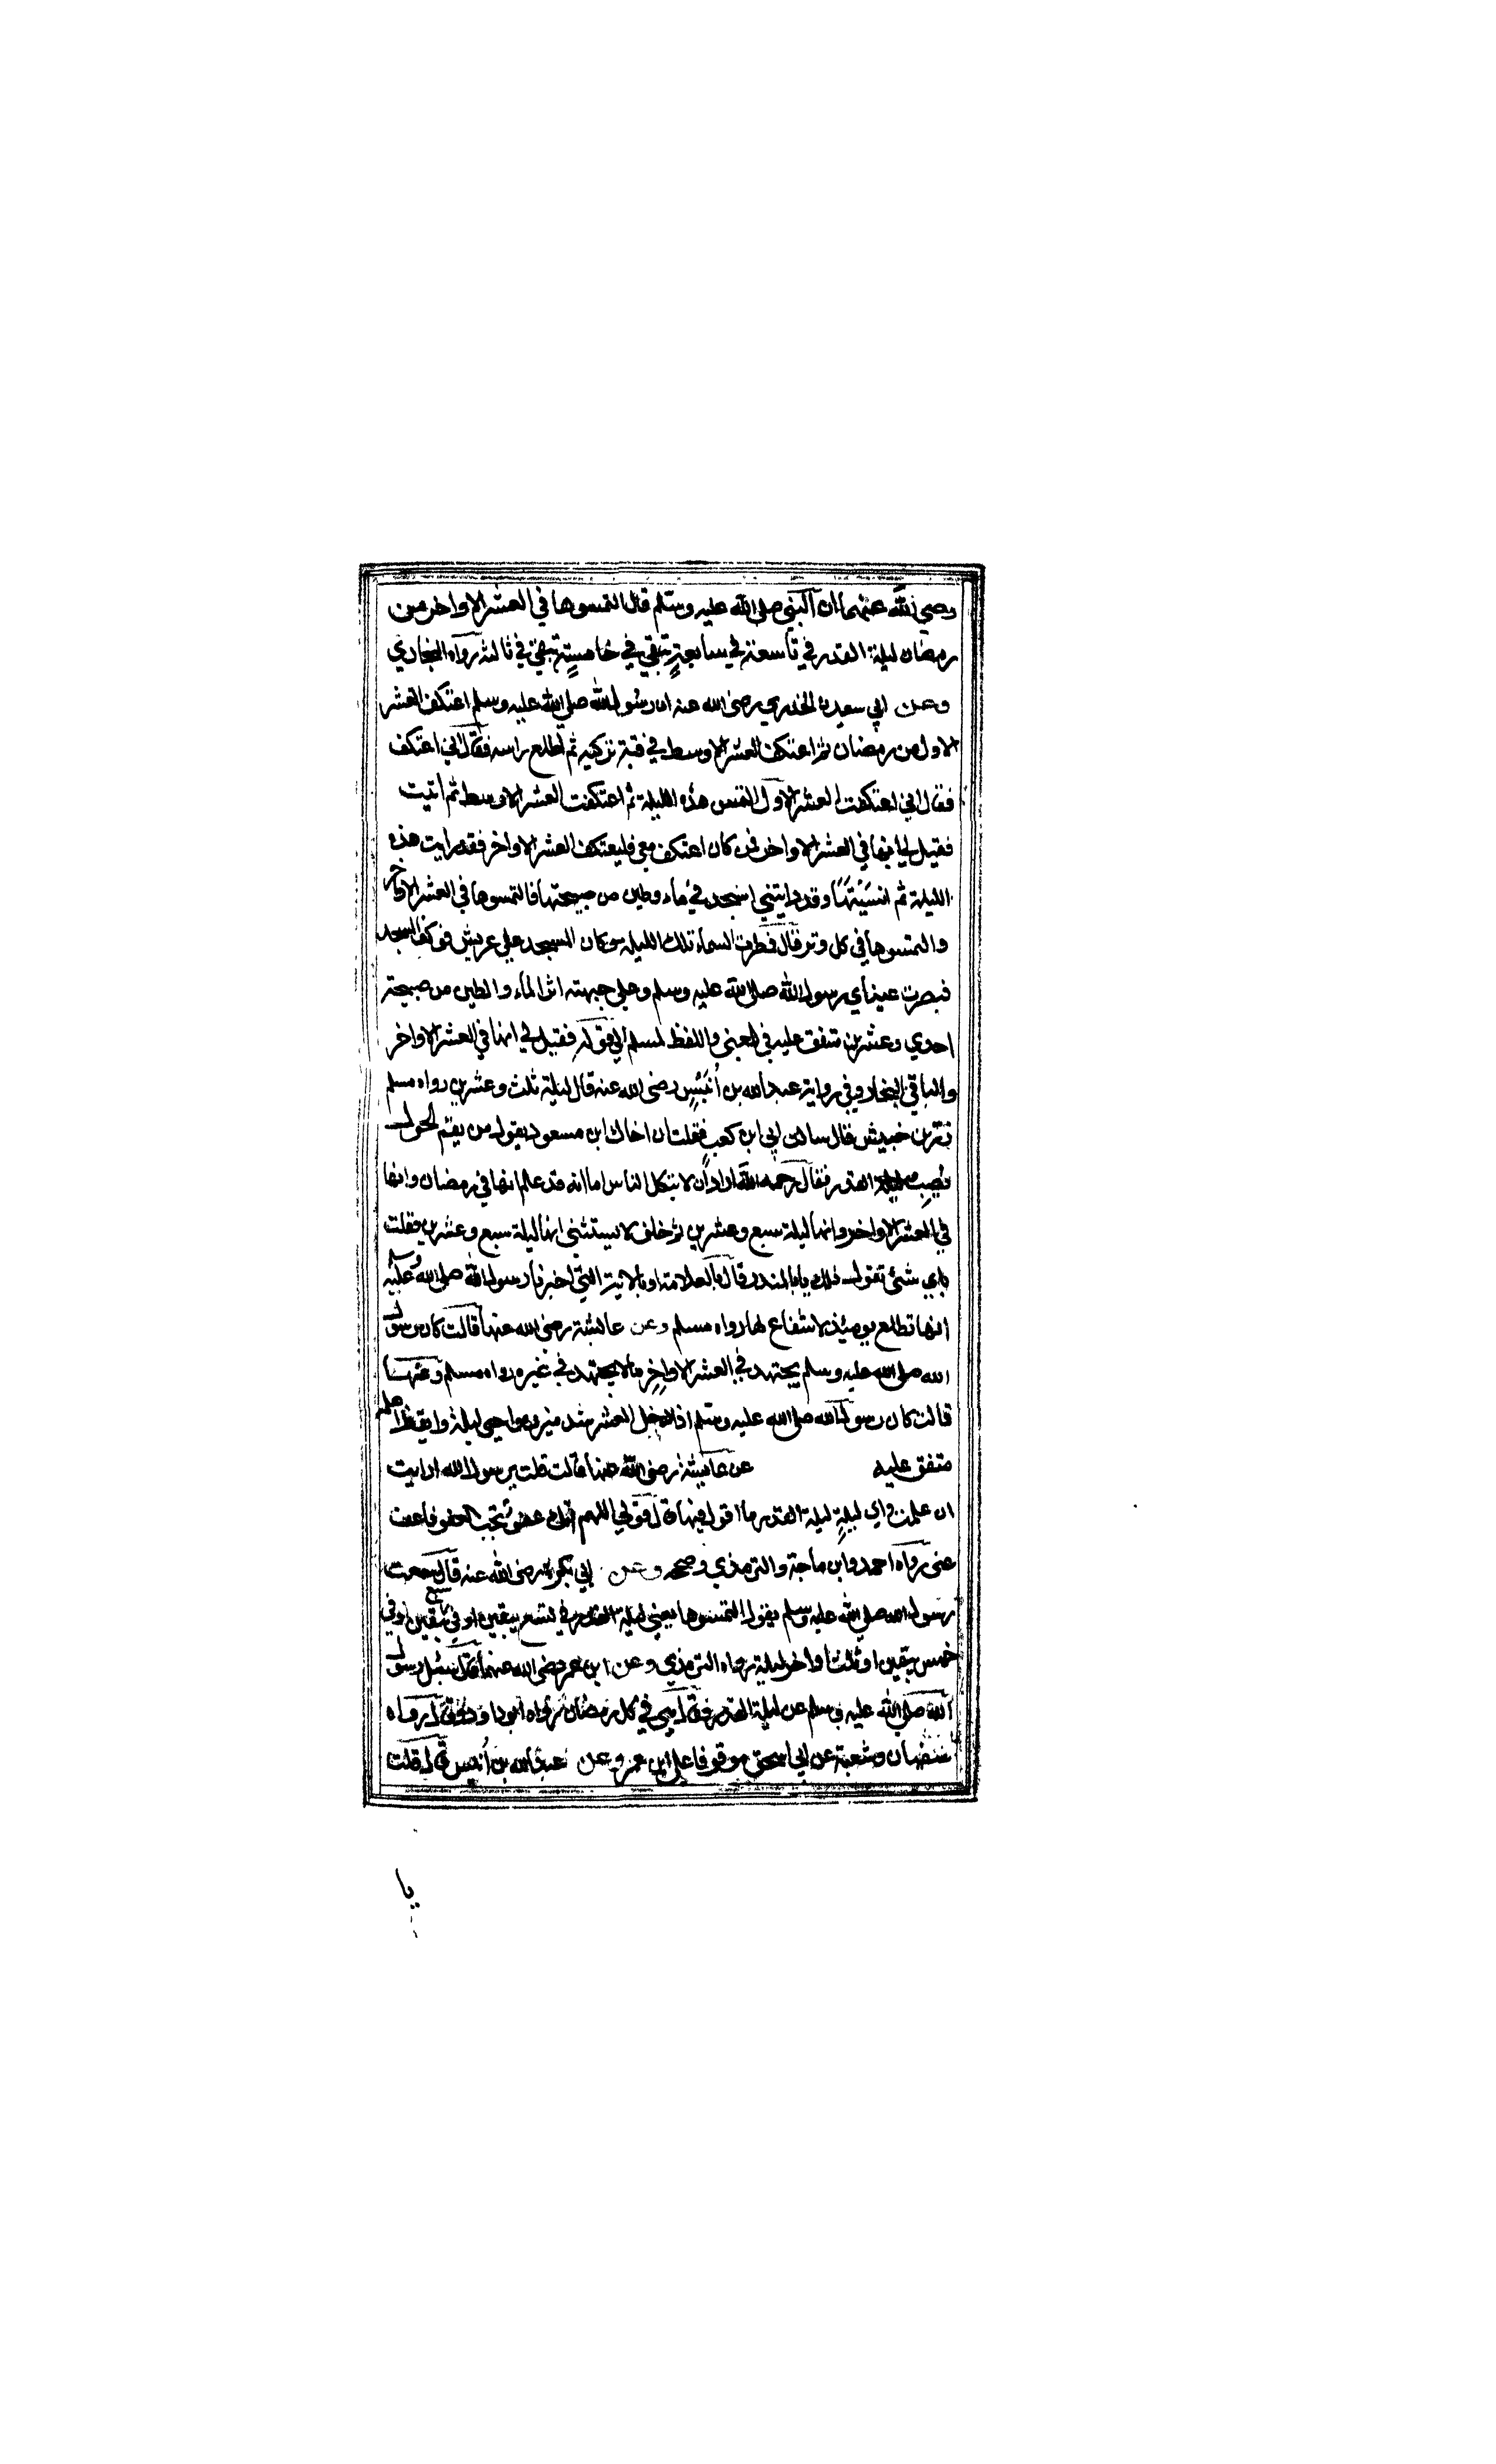 رضي الله عنهما ان النبي صلى الله عليه وسلم قال التمسوها في العشر الاواخر من
رمضان ليلة القدر في تاسعة في سابعةٍ تبقي في خامسةٍ تبقي في ثالثه رواه البخاري
وعن ابي سعيد الخدري رضى الله عنه ان رسول الله صلي الله عليه وسلم اعتكف العشر
الاول من رمضان ثم اعتكف العشر الاوسط في قبة تركيه ثم اطلع راسه فقال اني اعتكف
فقال اني اعتكفت العشر الاول التمس هذه الليلة ثم اعتكفت العشر الاوسط ثم اتيت
فقيل لي انها في العشر الاواخر فمن كان اعتكف معي فليعتكف العشر الاواخر فقد رايت هذه
الليلة ثم انسَيْتَهَا وقد رايتني اسجد في ماء وطين من صبيحتها فالتمسوها في العشر الاواخر
والتمسوها في كل وتر قال فمطرت السماء تلك الليلة وكان المسجد علي عريش فوكف المسجد
فبصرت عيناي رسول الله صلى الله عليه وسلم وعلي جبهته اثر الماء والطين من صبيحة
احدي وعشرين متفق عليه في المعنى واللفظ لمسلم الي قوله فقيل لي انها في العشر الاواخر
والباقي للبخاري وفي رواية عبد الله بن أُنَيْسٍ رضى الله عنه قال ليلة ثلث وعشرين رواه مسلم
زر بن حبيش قال سالت ابي ابن كعب فقلت ان اخاك ابن مسعود يقول من يقم الحول
يُصِبِ ليلة القدر فقال رحمه الله اراد ان لا يتكل الناس اما انه قد علم انها في رمضان وانها
في العشر الاواخر وانها ليلة سبع وعشرين ثم خلف لا يستثني انها ليلة سبع وعشرين فقلت
باي شئ تقول ذلك يا ابا المنذر قال بالعلامة او بالاية التي اخبرنا رسول الله صلى الله عليه وسلم
انها تطلع يومئذ لا شعاع لها رواه مسلم وعن عائشة رضي الله عنها قالت كان رسول
الله صلى الله عليه وسلم يجتهد في العشر الاواخِرِ ما لا يجتهد في غيره رواه مسلم وعنها
قالت كان رسول الله صلى الله عليه وسلم اذا دخل العشر شد ميزره واحيى ليلة وايقظ اهله
متفق عليه عن عائشة رضي الله عنها قالت قلت يرسول الله ارايت
ان علمت اي ليلةٍ ليلة القدر ما اقول فيها قال قولي اللهم انك عفوٌ تحب العفو فاعف
عنى رواه احمد وابن ماجة والترمذي وصححه وعن ابي بكرة رضى الله عنه قال سمعت
رسول الله صلي الله عليه وسلم يقول التمسوها يعني ليلة القدر في تسع يبقين او في سبع يبقين او في
خمس يبقين او ثلث او اخر ليلة رواه الترمذي وعن ابن عمر رضى الله عنهما قال سئل رسول
الله صلي الله عليه وسلم عن ليلة القدر فقال هي في كل رمضان رواه ابو داود وقال رواه
سفيان وشعبة عن ابي اسحق موقوفا علي ابن عمر وعن عبد الله بن أُنيس قال قلت
يا